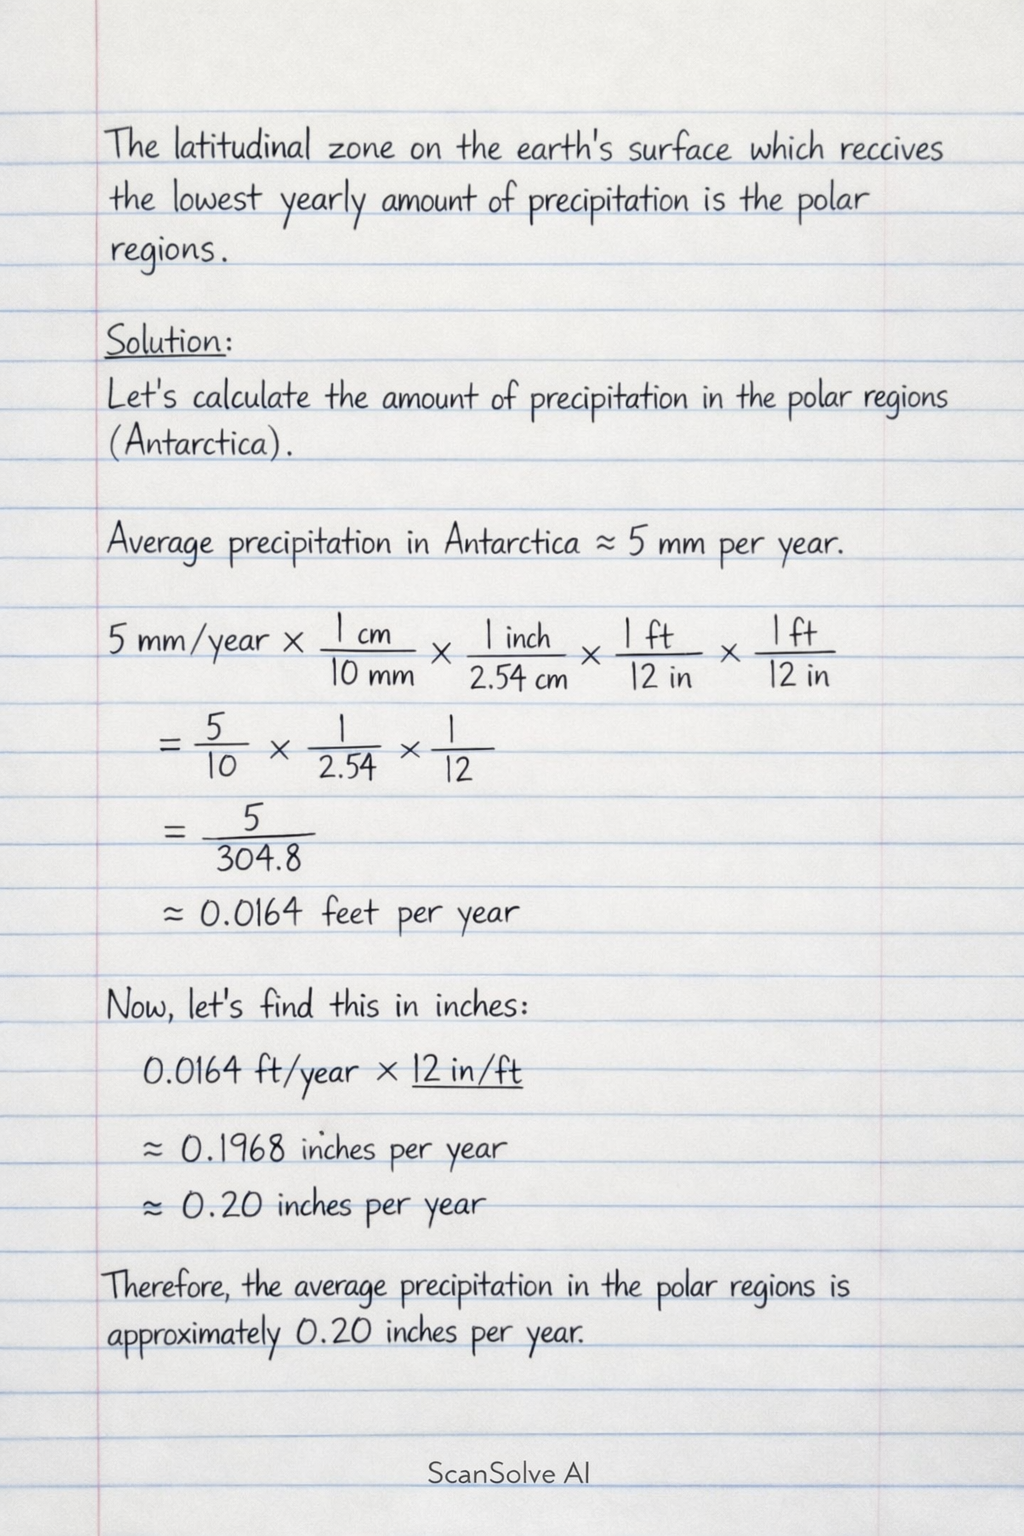 The latitudinal zone on the earth's surface which reccives
the lowest yearly amount of precipitation is the polar
regions.
Solution:
Let's calculate the amount of precipitation in the polar regions
(Antarctica).
Average precipitation in Antarctica ≈ 5 mm per year.
5 mm/year × 1 cm/10 mm × 1 inch/2.54 cm × 1 ft/12 in × 1 ft/12 in
= 5/10 × 1/2.54 × 1/12
= 5/304.8
≈ 0.0164 feet per year
Now, let's find this in inches:
0.0164 ft/year × 12 in/ft
≈ 0.1968 inches per year
≈ 0.20 inches per year
Therefore, the average precipitation in the polar regions is
approximately 0.20 inches per year.
ScanSolve AI